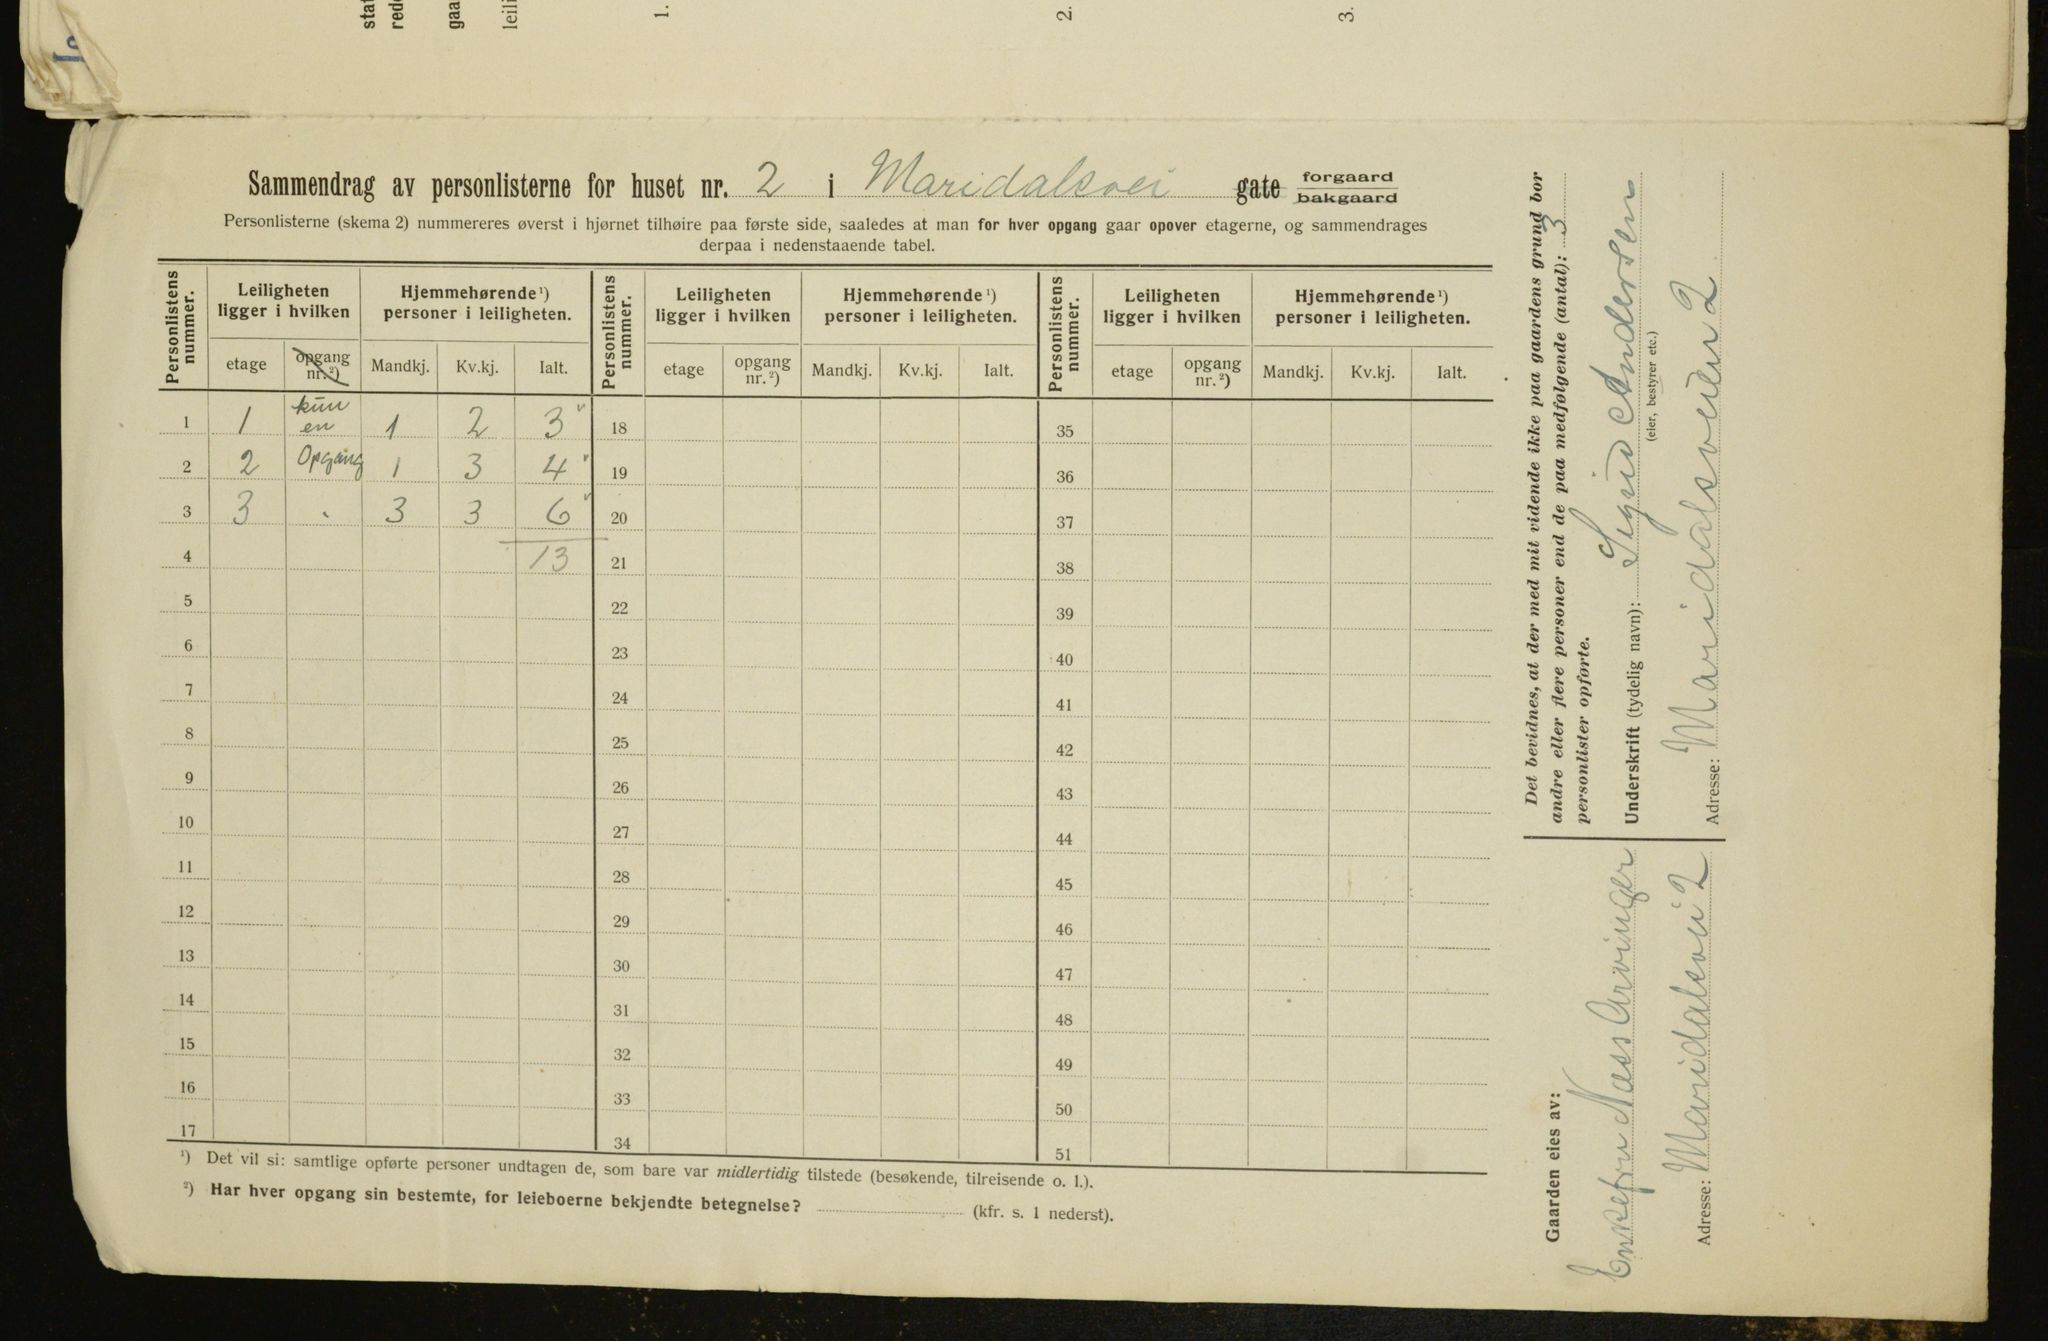 stat
rede
gaa
leili
1.
2.
3.
Sammendrag av personlisterne for huset nr. 2 i Maridalsvei gate forgaard
bakgaard
Personlisterne (skema 2) nummereres øverst i hjørnet tilhøire paa første side, saaledes at man for hver opgang gaar opover etagerne, og sammendrages
derpaa i nedenstaaende tabel.
Personlistens nummer. Leiligheten ligger i hvilken Hjemmehørende¹) personer i leiligheten. Personlistens nummer. Leiligheten ligger i hvilken Hjemmehørende¹) personer i leiligheten. Personlistens nummer. Leiligheten ligger i hvilken Hjemmehørende¹) personer i leiligheten.
etage opgang nr.²) Mandkj. Kv.kj. Ialt. etage opgang nr.²) Mandkj. Kv.kj. Ialt. etage opgang nr.²) Mandkj. Kv.kj. Ialt.
1 1 kun en 1 2 3 18 35
2 2 Opgang 1 3 4 19 36
3 3 3 3 6 20 37
4 13 21 38
5 22 39
6 23 40
7 24 41
8 25 42
9 26 43
10 27 44
11 28 45
12 29 46
13 30 47
14 31 48
15 32 49
16 33 50
17 34 51
¹) Det vil si: samtlige opførte personer undtagen de, som bare var midlertidig tilstede (besøkende, tilreisende o. l.).
²) Har hver opgang sin bestemte, for leieboerne bekjendte betegnelse? (kfr. s. 1 nederst).
Det bevidnes, at der med mit vidende ikke paa gaardens grund bor
andre eller flere personer end de paa medfølgende (antal): 3
personlister opførte.
Underskrift (tydelig navn): Sigrid Andersen
(eier, bestyrer etc.)
Adresse: Maridalsveien 2
Gaarden eies av:
Enkefru Næss Arvinger
Adresse: Maridalsvei 2